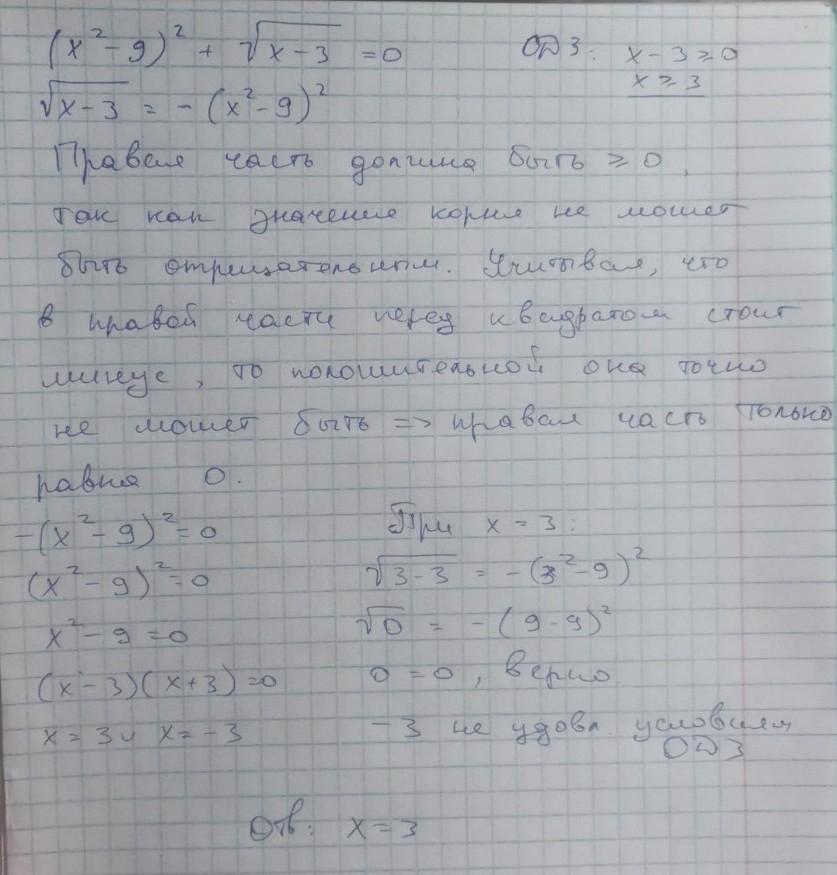 (x² - 9)² + √(x - 3) = 0
ОДЗ: x - 3 ≥ 0
x ≥ 3
√(x - 3) = - (x² - 9)²
Правая часть должна быть ≥ 0,
так как значение корня не может
быть отрицательным. Учитывая, что
в правой части перед квадратом стоит
минус, то положительной она точно
не может быть => правая часть только
равна 0.
-(x² - 9)² = 0
(x² - 9)² = 0
x² - 9 = 0
(x - 3)(x + 3) = 0
x = 3 и x = -3
При x = 3:
√(3 - 3) = - (3² - 9)²
√0 = - (9 - 9)²
0 = 0, верно
-3 не удовл. условиям
ОДЗ
Отв: x = 3